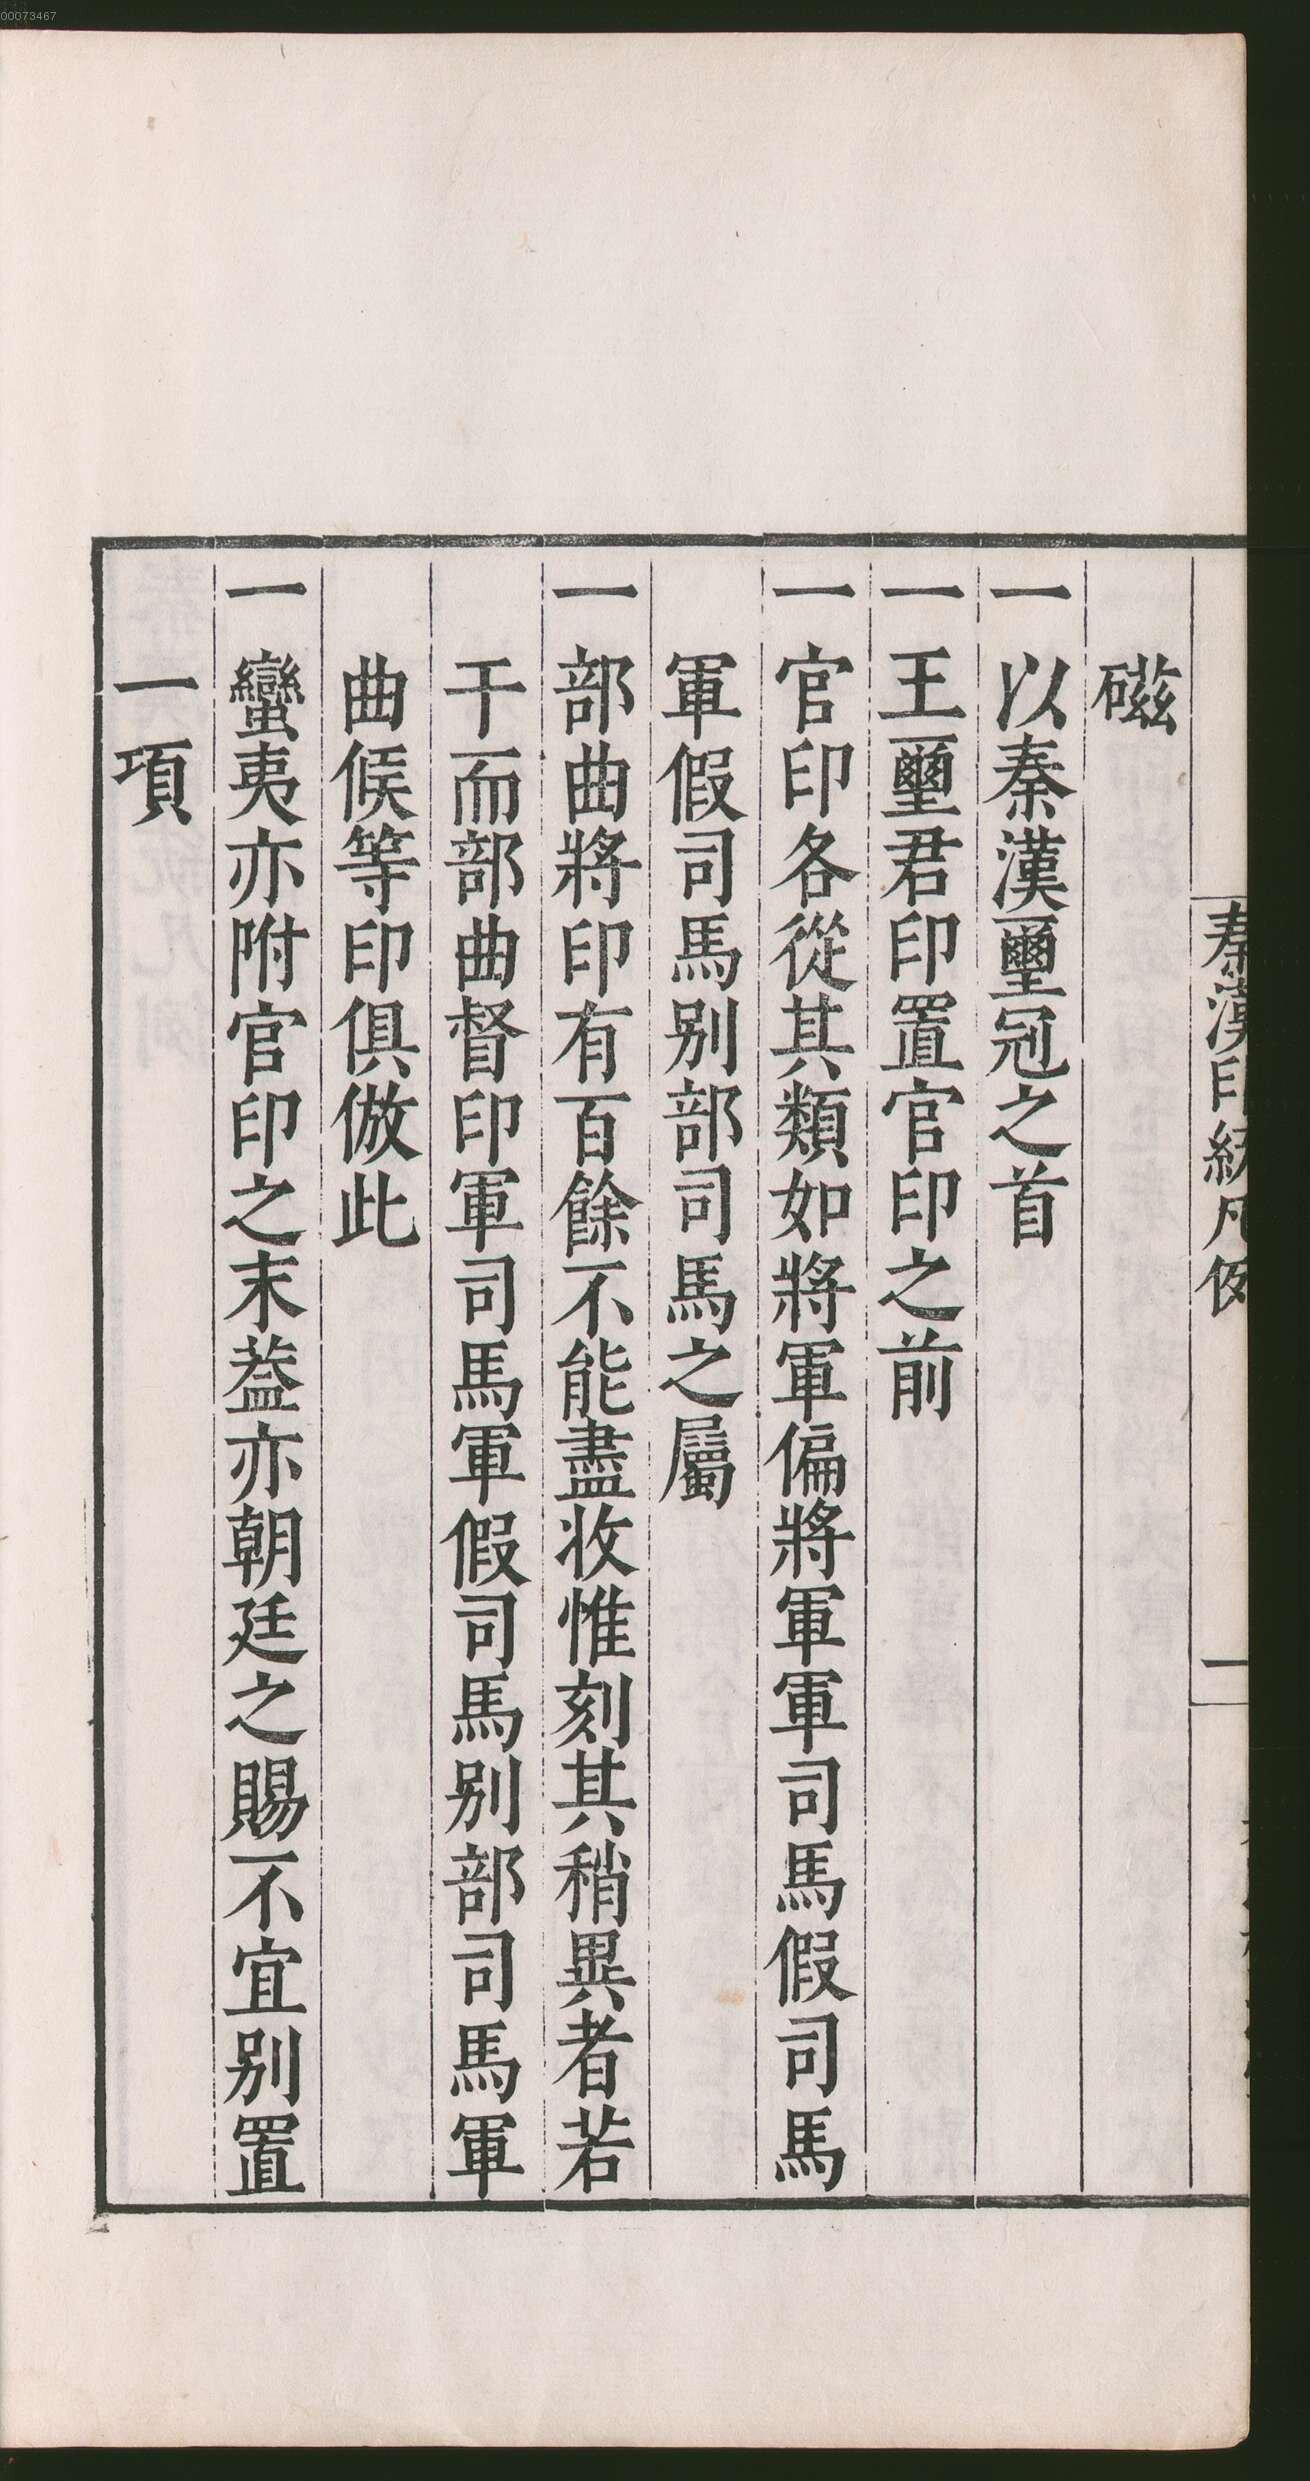 00073467
秦漢印統凡例
一
磁
一以秦漢璽冠之首
一王璽君印置官印之前
一官印各從其類如將軍偏將軍軍司馬假司馬
軍假司馬别部司馬之屬
一部曲將印有百餘不能盡收惟刻其稍異者若
干而部曲督印軍司馬軍假司馬别部司馬軍
曲候等印俱倣此
一蠻夷亦附官印之末葢亦朝廷之賜不宜别置
一項